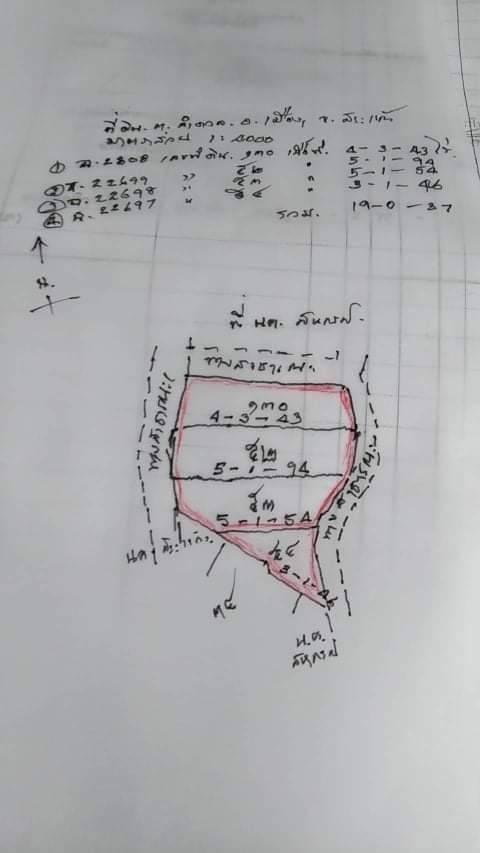 ที่ดิน. ต. อ. เมือง, จ. สระแก้ว
มาตราส่วน 1: 4000
① ฉ. 2808 เลขที่ดิน. ๑๓๐ เนื้อที่ 4-3-43 ไร่.
② ฉ. 22699 " ๕๒ " 5-1-94
③ ฉ. 22698 " ๕๓ " 5-1-54
④ ฉ. 22697 " ๕๔ " 3-1-46
รวม. 19-0-37
น.
ที่ นค. สหกรณ์.
ทางสาธารณะ
ทางสาธารณะ
๑๓๐
4-3-43
๕๒
5-1-94
ทางสาธารณะ
๕๓
5-1-54
๕๔
3-1-46
นค.
๓๔
น.ค.
สหกรณ์